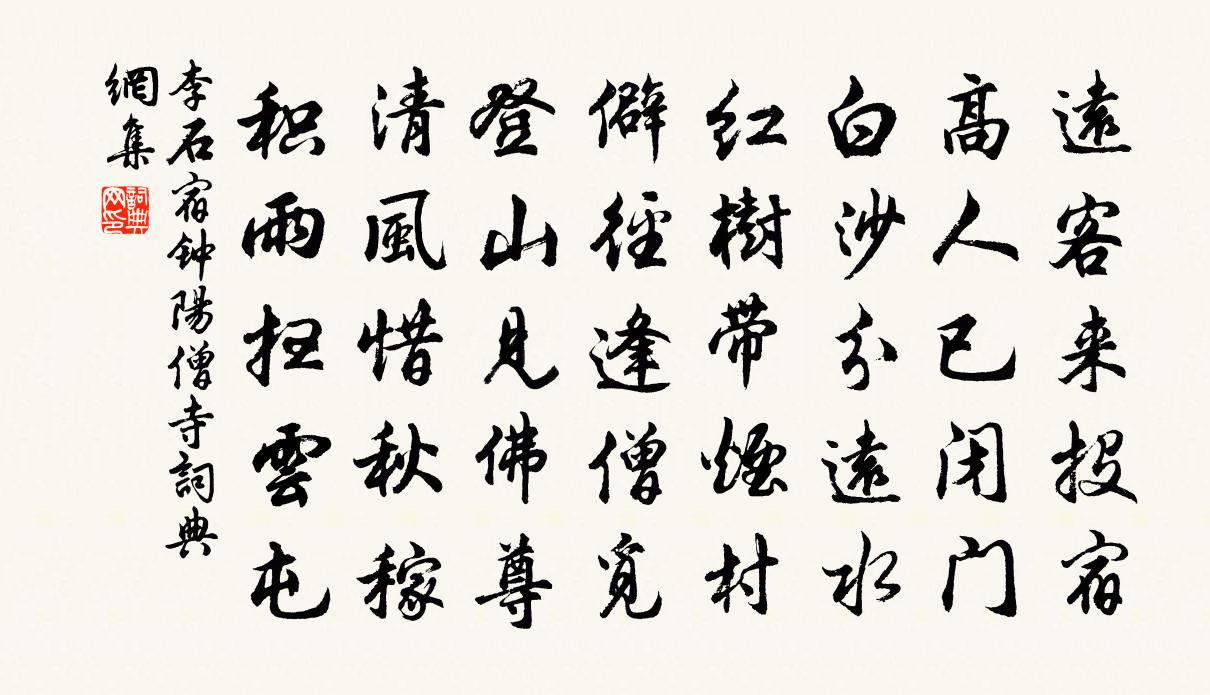 遠客来投宿
高人已闭门
白沙分遠水
红樹帶煙村
僻徑逢僧覓
登山見佛尊
清風惜秋稼
积雨扫雲屯
李石宿钟陽僧寺詞典
網集
詞典
网印